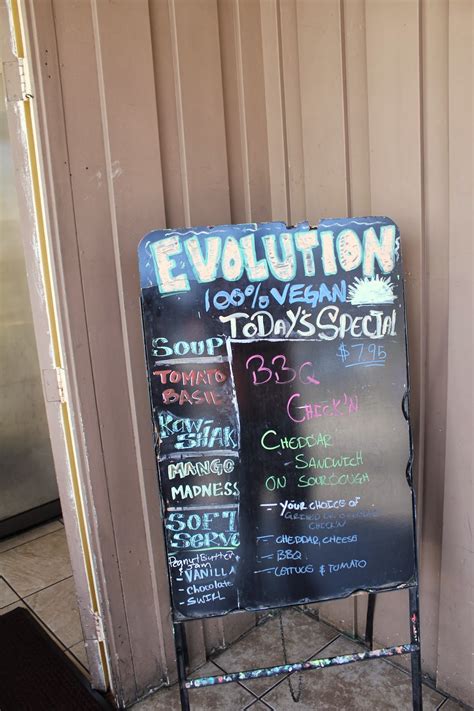 EVOLUTION
100% VEGAN
TODAY'S SPECIAL
$7.95
SOUP
TOMATO
BASIL
KOWI
SHAK
MANGO
MADNESS
SOFT
SERVE
Peanut Butter &
Jam
- VANILLA
- Chocolate
- SWIRL
BBQ
CHICK'N
CHEDDAR
- SANDWICH
ON SOURDOUGH
- YOUR CHOICE OF
GRILLED OR
CHICK'N
- CHEDDAR CHEESE
- BBQ
- LETTUCE & TOMATO